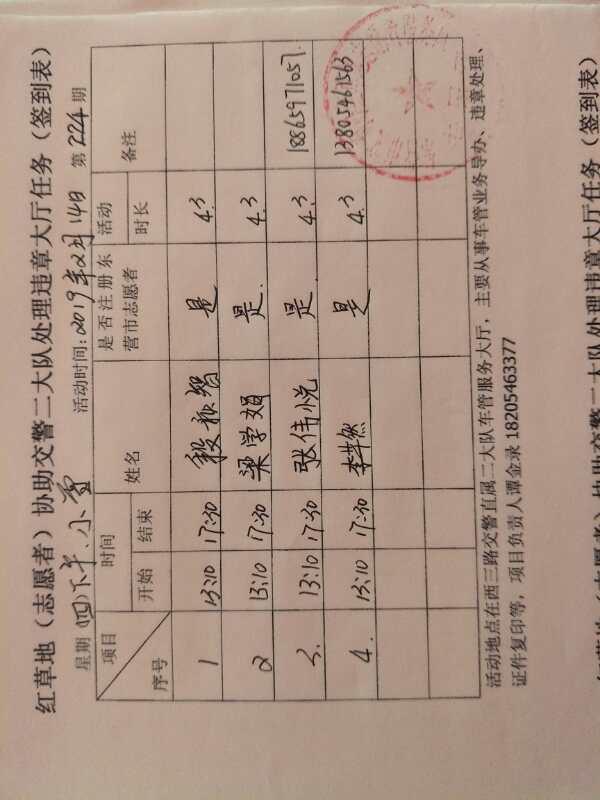 红草地（志愿者）协助交警二大队处理违章大厅任务（签到表）
星期(四)下午. 活动时间:2019年2月14日 第224期
项目 时间 姓名 是否注册东营市志愿者 活动时长 备注
序号 开始 结束
1 13:10 17:30 是 4.3
2 13:10 17:30 梁学娟 是. 4.3
3. 13:10 17:30 张伟悦 是. 4.3 18865971057.
4. 13:10 17:30 是 4.3 13805467563
活动地点在西三路交警直属二大队车管服务大厅，主要从事车管业务导办、违章处理、
证件复印等，项目负责人谭金录 18205463377
协助交警二大队处理违章大厅任务（签到表）